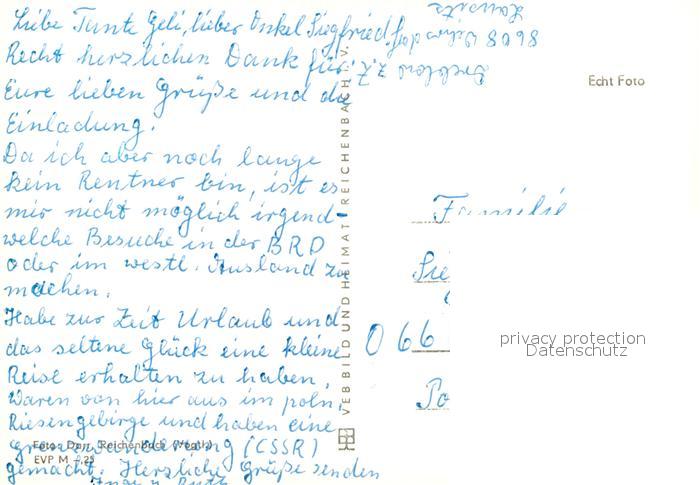 Liebe Tante Geli, lieber Onkel Siegfried!
Recht herzlichen Dank für
Eure lieben Grüße und die
Einladung.
Da ich aber noch lange
kein Rentner bin, ist es
mir nicht möglich irgend-
welche Besuche in der BRD
oder im westl. Ausland zu
machen.
Habe zur Zeit Urlaub und
das seltene Glück eine kleine
Reise erhalten zu haben,
Waren von hier aus im poln.
Riesengebirge und haben eine
grenzwanderung (CSSR)
gemacht. Herzliche Grüße senden
z. Z.
8608
Lausitz
VEB BILD UND HEIMAT REICHENBACH I. V.
Foto: Darr, Reichenbach (Vogtl.)
EVP M -,25
Echt Foto
Familie
066
Po
privacy protection
Datenschutz